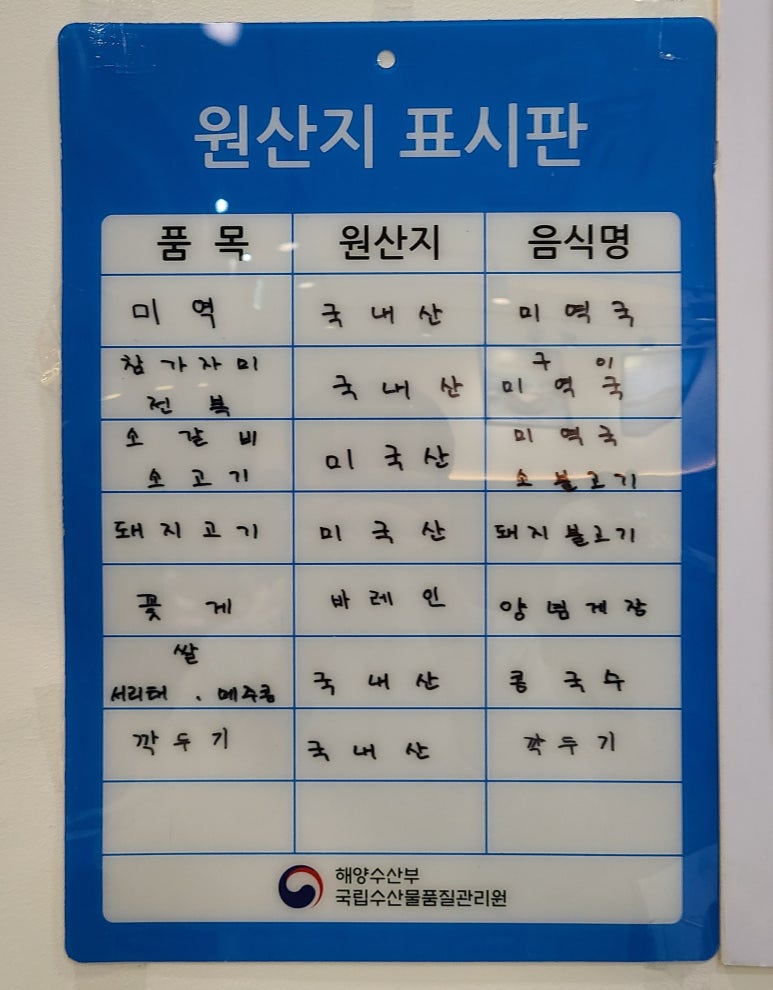 원산지 표시판
품 목 원산지 음식명
미 역 국 내 산 미 역 국
참 가 자 미 구 이
전 복 국 내 산 미 역 국
소 갈 비 미 역 국
소 고 기 미 국 산 소 불 고 기
돼 지 고 기 미 국 산 돼 지 불 고 기
꽃 게 바 레 인 양 념 게 장
쌀
서리태 . 메주콩 국 내 산 콩 국 수
깍 두 기 국 내 산 깍 두 기
해양수산부
국립수산물품질관리원